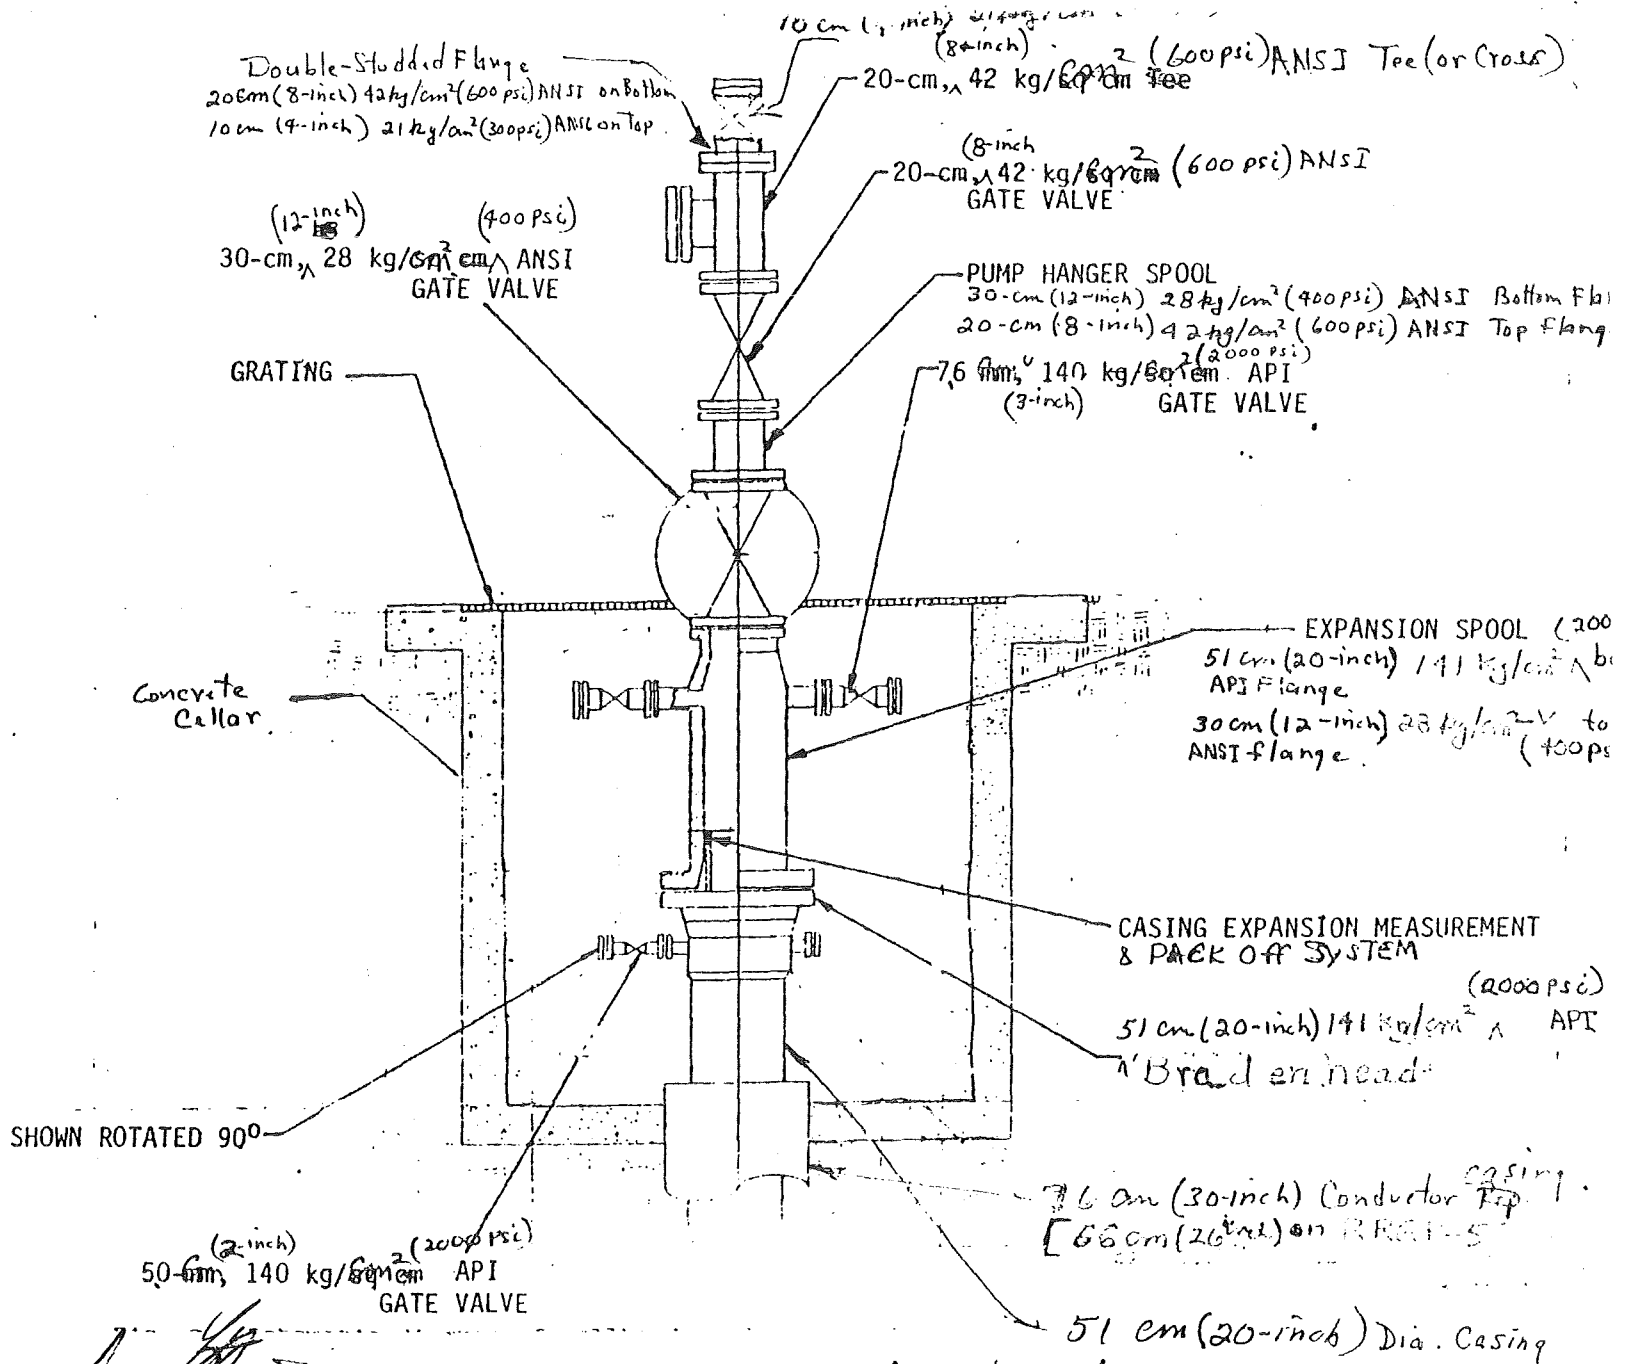 10 cm
Double-Studded Flange
20 cm (8-inch) 42 kg/cm² (600 psi) ANSI on Bottom
10 cm (4-inch) 21 kg/cm² (300 psi) ANSI on Top
(8-inch)
20-cm, 42 kg/cm² (600 psi) ANSI Tee (or Cross)
(8-inch
20-cm, 42 kg/cm² (600 psi) ANSI
GATE VALVE
(12-inch) (400 psi)
30-cm, 28 kg/cm² ANSI
GATE VALVE
PUMP HANGER SPOOL
30-cm (12-inch) 28 kg/cm² (400 psi) ANSI Bottom Fla
20-cm (8-inch) 42 kg/cm² (600 psi) ANSI Top flang
GRATING
7.6 cm, 140 kg/cm² (2000 psi) API
(3-inch) GATE VALVE
EXPANSION SPOOL (200
51 cm (20-inch) 141 kg/cm² bo
API Flange
30 cm (12-inch) 28 kg/cm² to
ANSI flange. (400 ps
Concrete
Cellar
CASING EXPANSION MEASUREMENT
& PACK OFF SYSTEM
(2000 psi)
51 cm (20-inch) 141 kg/cm² API
Braden head
SHOWN ROTATED 90°
76 cm (30-inch) Conductor casing.
[66 cm (26 inch) on RRGE-5
(2-inch) (2000 psi)
5.0 cm, 140 kg/cm² API
GATE VALVE
51 cm (20-inch) Dia. Casing